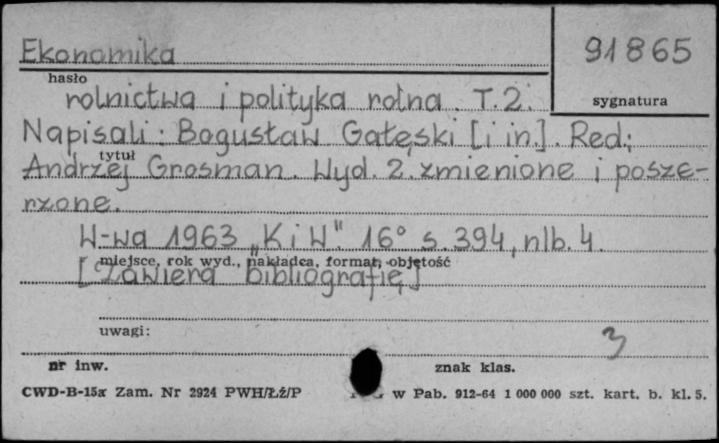 Ekonomika
91865
hasło
sygnatura
rolnictwa i polityka rolna. T.2.
Napisali: Bogusław Gałęski [i in.]. Red.:
tytuł
Andrzej Grosman. Wyd. 2. zmienione i posze-
rzone.
W-wa 1963 „K i W". 16° s. 394, nlb. 4.
miejsce, rok wyd., nakładca, format, objętość
[Zawiera bibliografię]
uwagi:
3
nr inw.
znak klas.
CWD-B-15x Zam. Nr 2924 PWH/Łź/P
w Pab. 912-64 1 000 000 szt. kart. b. kl. 5.